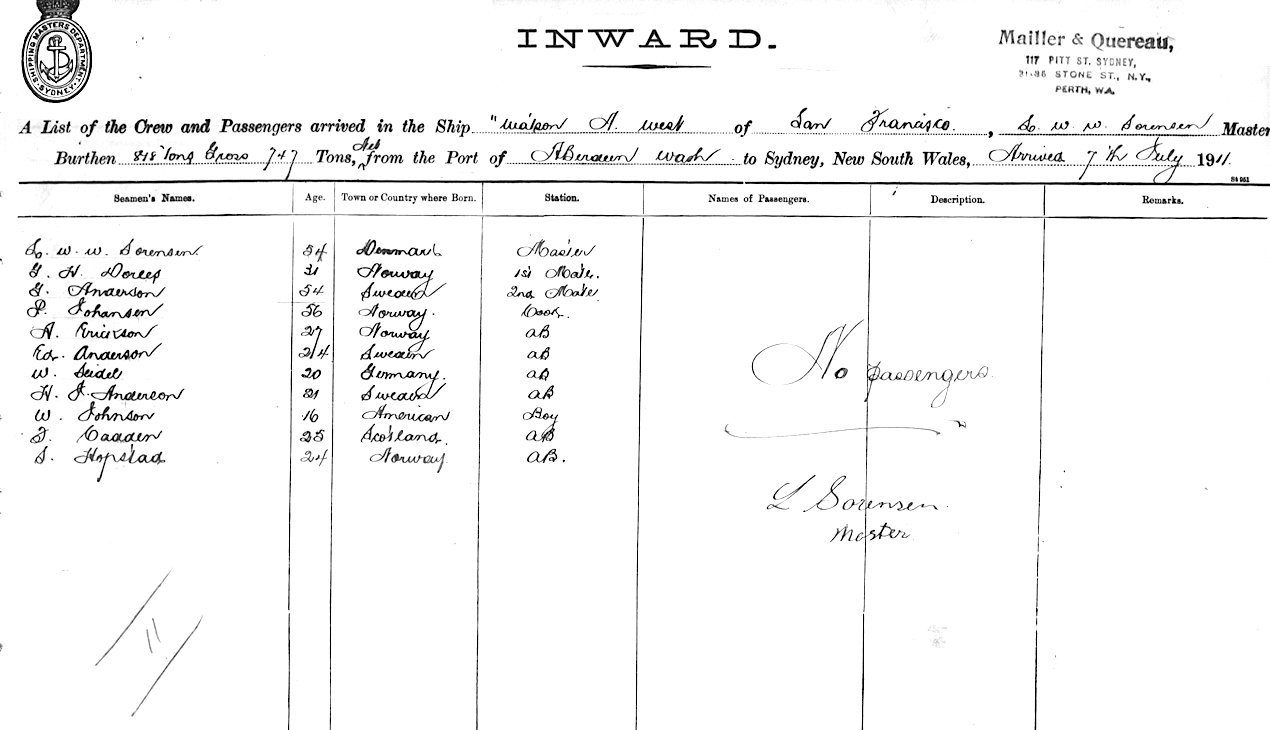 SHIPPING MASTERS DEPARTMENT. SYDNEY
INWARD.
Mailler & Quereau,
117 PITT ST. SYDNEY,
STONE ST., N.Y.,
PERTH, W.A.
A List of the Crew and Passengers arrived in the Ship "Watson A. West of San Francisco, L. W. W. Sorensen Master
Burthen 818 Tons Gross 747 Tons, Net from the Port of Aberdeen Wash to Sydney, New South Wales, Arrived 7th July 1911.
Seamen's Names. Age. Town or Country where Born. Station. Names of Passengers. Description. Remarks.
L. W. W. Sorensen 54 Denmark Master
H. 31 Norway 1st Mate.
Anderson 54 Sweden 2nd Mate
P. Johansen 56 Norway. Cook.
A. Erickson 27 Norway AB
Ed. Anderson 24 Sweden AB
W. Seidel 20 Germany. AB
H. J. Anderson 21 Sweden AB
W. Johnson 16 American Boy
Cadden 25 Scotland. AB
Hopstad 24 Norway AB.
No passengers
L Sorensen
Master
11